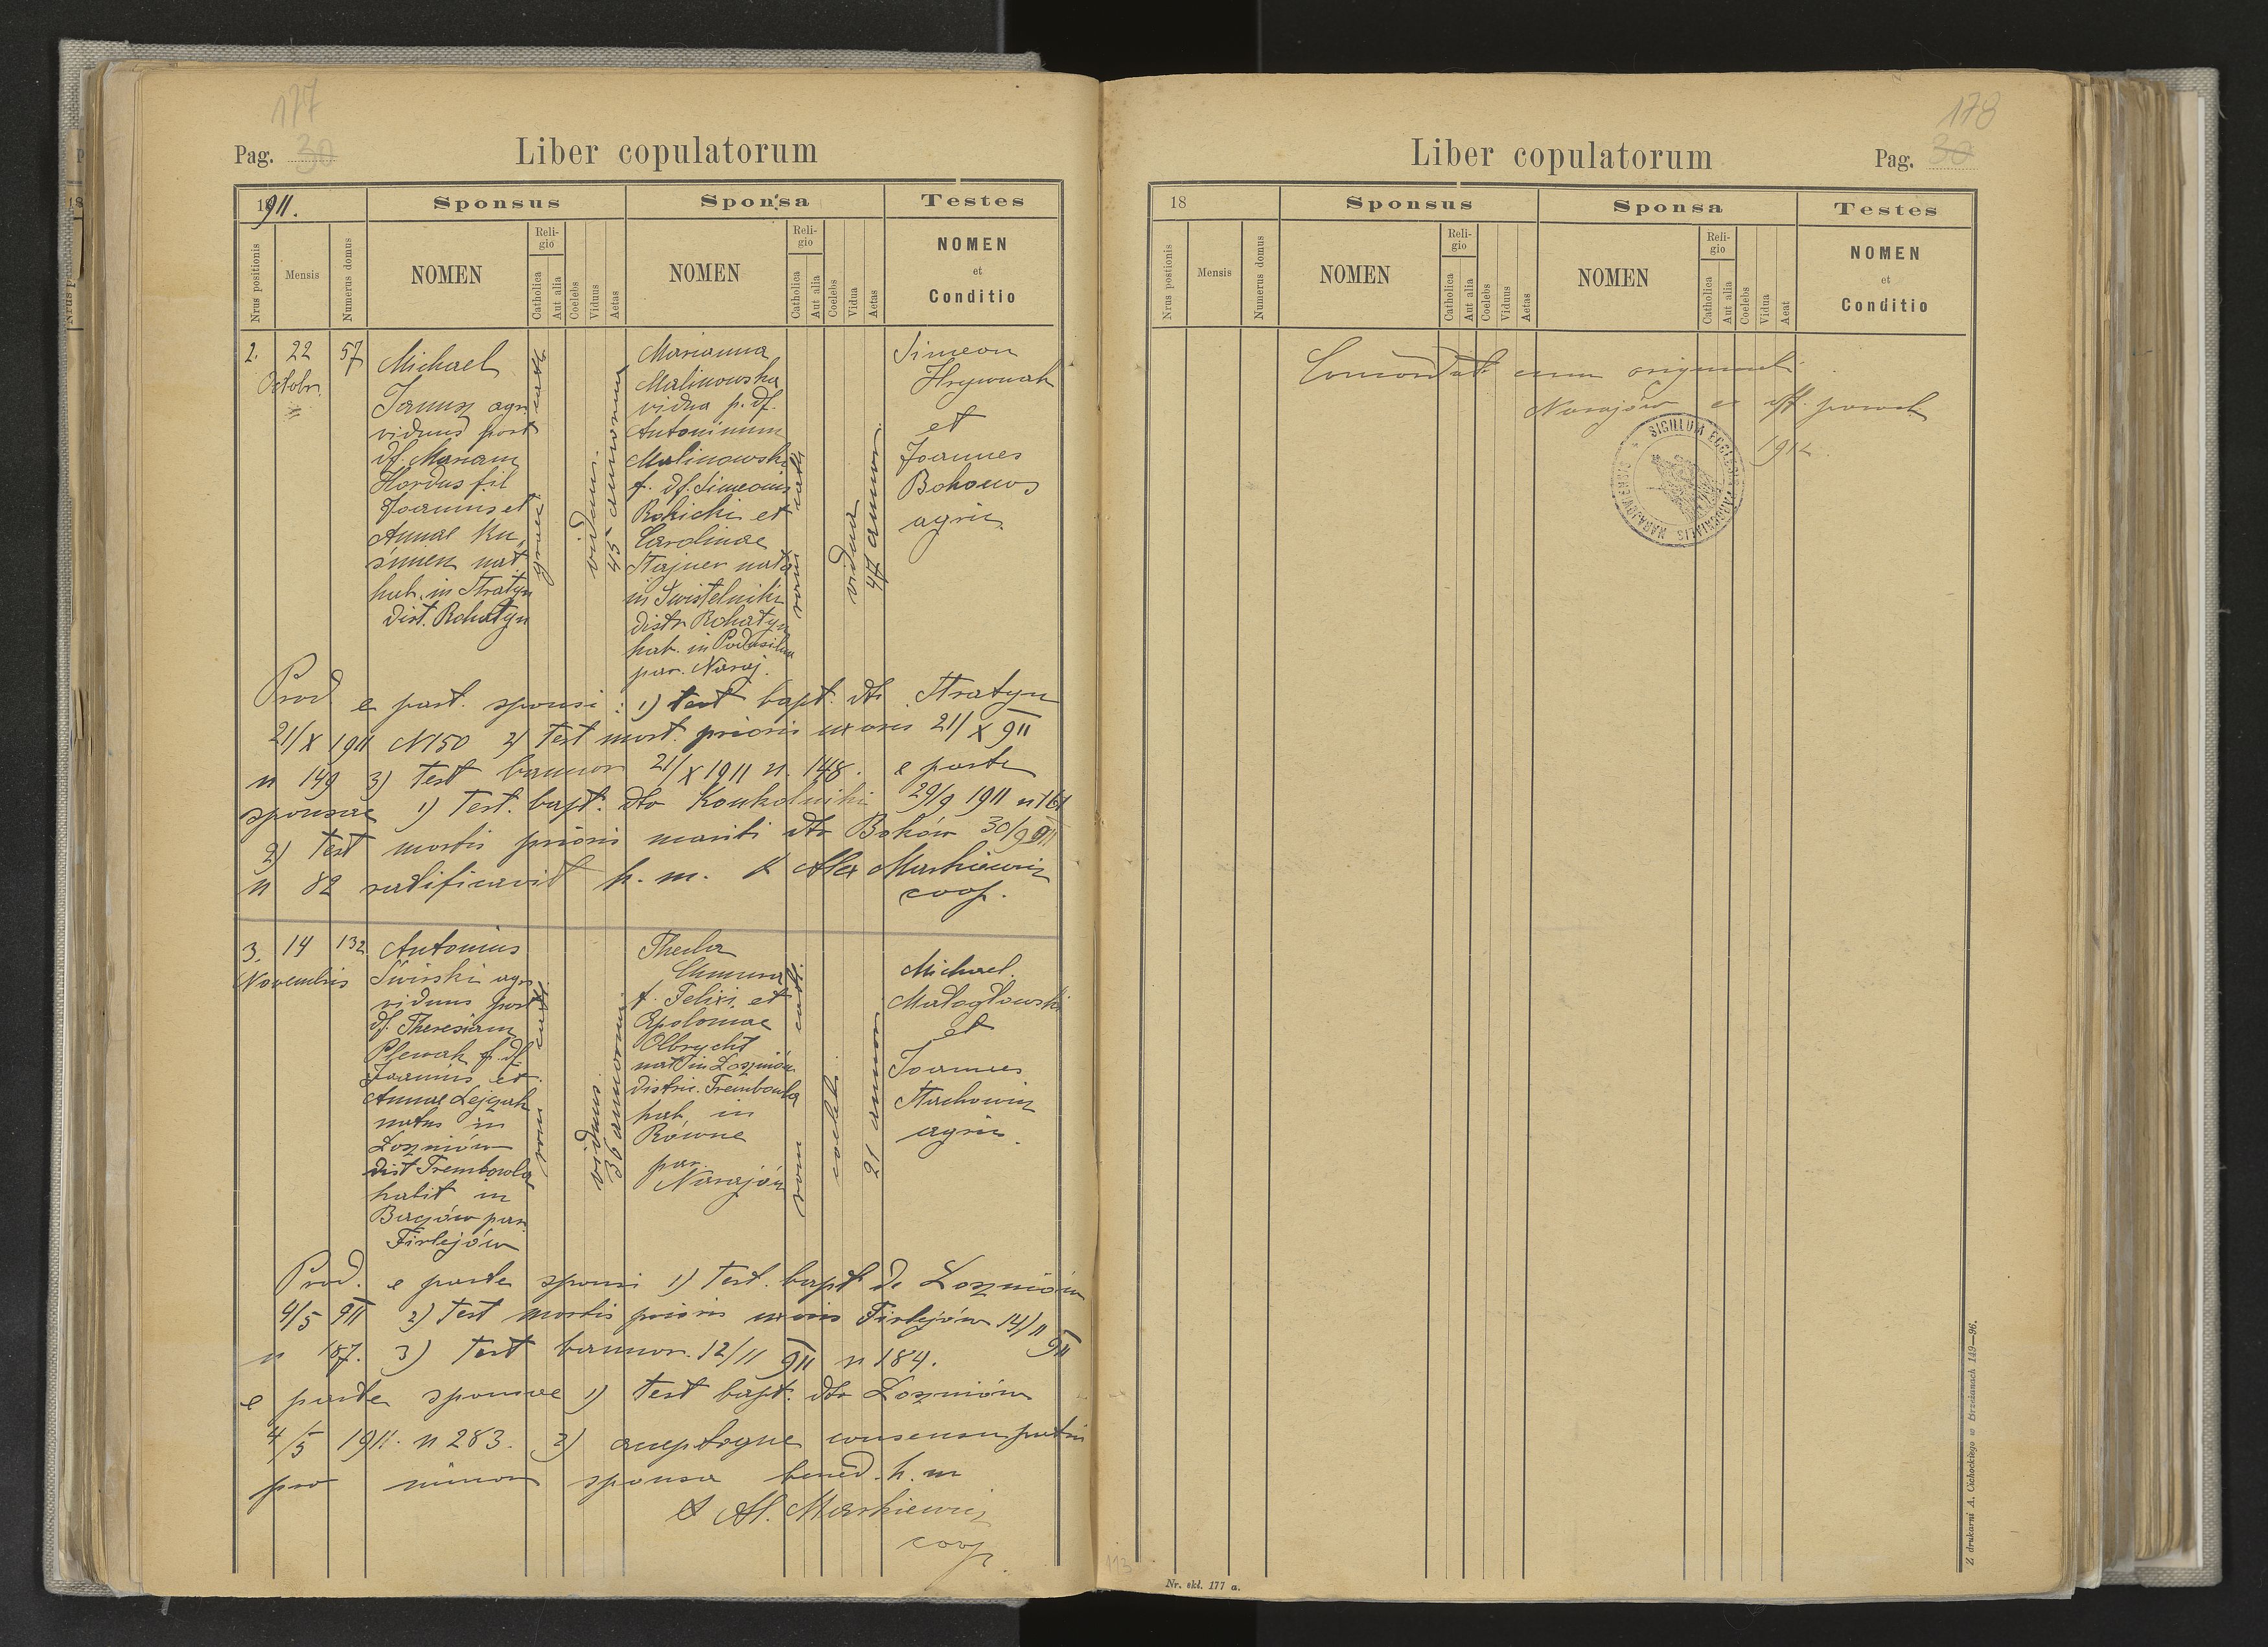 177
Pag. 30
Liber copulatorum
1911.
Sponsus
Sponsa
Testes
Nrus positionis
Mensis
Numerus domus
NOMEN
Reli-
gio
Catholica
Aut alia
Coelebs
Viduus
Aetas
NOMEN
Reli-
gio
Catholica
Aut alia
Coelebs
Vidua
Aetas
NOMEN
et
Conditio
2.
22
Octobr.
57
Michael
Janusz agr.
viduus post
df. Mariam
Hordus fil
Joannis et
Annae Ku
śnierz nat.
hab. in Stratyn
dist. Rohatyn
graec. cath.
viduus.
45 annorum
Marianna
Malinowska
vidua p. df.
Antoninum
Malinowski
f. df. Simeonis
Rokicki et
Carolinae
Stajner nata
in Świstelniki
distr Rohatyn
hab. in Podusilna
par. Naraj.
rom cath
vidua
47 annor.
Simeon
Hrywnak
et
Joannes
Bohonos
agric
Prod e part. sponsi : 1) test bapt. dto Stratyn
21/X 1911 N150 2) Test mort. prioris uxoris 21/X 911
n 149 3) Test bannor 21/X 1911 n. 148. e parte
sponsae 1) Test. bapt. dto Konkolniki 29/9 1911 n 161
2) Test mortis prioris mariti dto Boków 30/9 911
n 82 ratificavit h. m. X Alex Markiewicz
coop.
3.
14
Novembris
132
Antonius
Świrski agr.
viduus post
df. Theresiam
Plewak f. df.
Joannis et
Annae Lejczak
natus in
Łoszniów
dist Trembowla
habit in
Bacjów par.
Firlejów
rom cath.
viduus.
36 annorum
Thecla
Chmura
f. Felixi et
Apoloniae
Olbrycht
nat in Łoszniów
distric. Trembowla
hab in
Równe
par.
Narajów
rom cath.
coelebs.
21 annor
Michael
Małogłowski
et
Joannes
Stachowicz
agric.
Prod. e parte sponsi 1) Test. bapt de Łoszniów
4/5 911 2) Test mortis prioris uxoris Firlejów 14/11 911
n 187. 3) Test bannor. 12/11 911 n 184.
e parte sponsae 1) Test bapt. dto Łoszniów
4/5 1911. n 283. 2) acceptoque consensu patris
pro minor sponsa bened. h. m
X Al. Markiewicz
coop.
178
Liber copulatorum
Pag. 30
18
Sponsus
Sponsa
Testes
Nrus postionis
Mensis
Numerus domus
NOMEN
Reli-
gio
Catholica
Aut alia
Coelebs
Viduus
Aetas
NOMEN
Reli-
gio
Catholica
Aut alia
Coelebs
Vidua
Aeat
NOMEN
et
Conditio
Concordat cum originali
Narajów ex off. paroch
1912.
SIGILLUM ECCLESIAE PAROCHIALIS NARAJOVIENSIS
113
Nr. skł. 177 a.
Z drukarni A. Cichockiego w Brzeżanach 149—96.